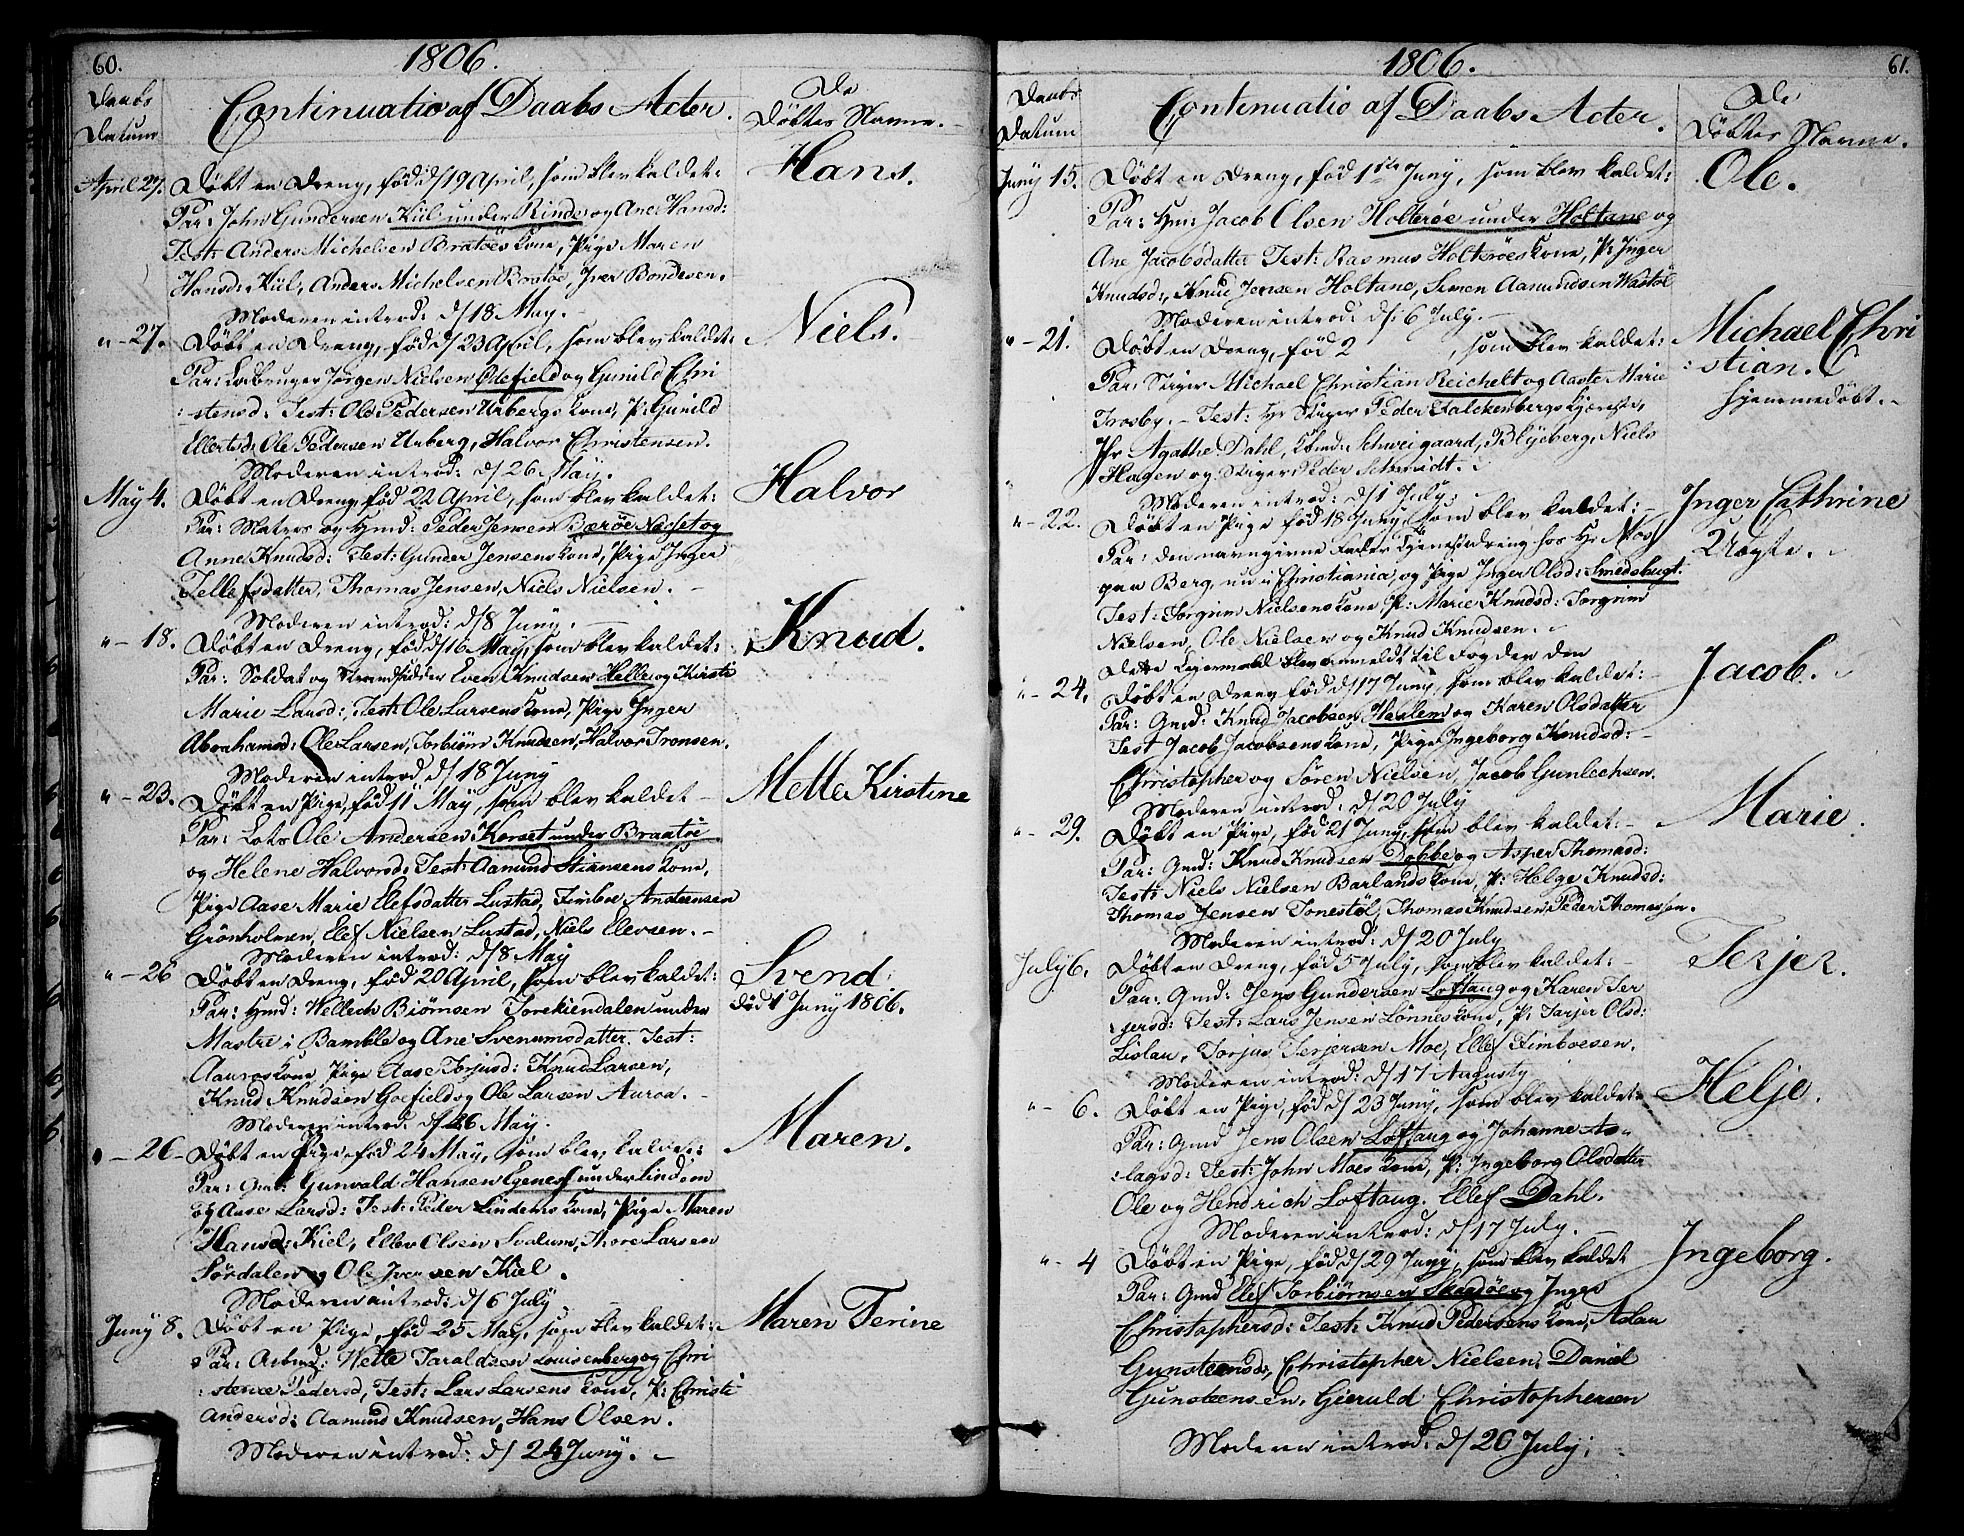 60.
1806.
Daabs
Datum
Continuatio af Daabs Acter.
De
Döbtes Navne.
April 27.
Döbt en Dreng, föd d/19 April, som blev kaldet:
Hans.
Par: John Gundersen Kiil under Rinde og Ane Hansd:
Test: Anders Michelsen Bratöes Kone, Pige Maren
Hansd: Kiil, Anders Michelsen Bratöe, Iver Bondesen.
Moderen introd: d/18 May.
" - 27.
Döbt en Dreng, föd d/23 April, som blev kaldet:
Niels.
Par: Lodbruger Jörgen Nielsen Ötefield og Gunild Chri
:stensd: Test: Ole Pedersen Urbergs Kone, P: Gunild
Ellertsd: Ole Pedersen Urberg, Halvor Christensen.
Moderen introd: d/26 May.
May 4.
Döbt en Dreng, föd 22 April, som blev kaldet:
Halvor
Par: Matros og Hmd: Peder Jensen Baröe Nachet og
Anne Knudsd: Test: Gunder Jensens Kone, Pige Inger
Tellefsdatter, Thomas Jensen, Niels Nielsen.
Moderen introd: d/8 Juny.
" - 18.
Döbt en Dreng, föd d/16 May, som blev kaldet:
Knud.
Par: Soldat og Strandsidder Even Knudsen Helle og Kirsti
Marie Larsd:, Test: Ole Larsens Kone, Pige Inger
Abrahamsd: Ole Larsen, Torbiörn Knudsen, Halvor Tronsen.
Moderen introd d/18 Juny
" - 23.
Döbt en Pige, föd 11 May, som blev kaldet
Mette Kirstine
Par: Lots Ole Andersen Korset under Braatöe
og Helene Halvorsd: Test: Aamund Stiansens Kone,
Pige Aase Marie Elefsdatter Lustad, Fimboe Ansteensen
Grönholmen, Elef Nielsen Lustad, Niels Elevsen.
Moderen introd: d/8 May
" - 26
Döbt en Dreng, föd 20 April, som blev kaldet:
Svend
död 1 Juny 1806.
Par: Hmd: Wellech Biörnsen Torekiendalen under
Mastre i Bamble og Ane Svenumsdatter. Test:
Aauroes Kone, Pige Aase Torjusd: Knud Larsen,
Knud Knudsen Goefield og Ole Larsen Auroa.
Moderen introd: d/26 May.
" - 26
Döbt en Pige, föd 24 May, som blev kaldet:
Maren.
Par: Gmd: Gunvald Hansen Egenes under Lindem
og Aase Larsd: Test: Peder Lindems Kone, Pige Maren
Hansd: Kiel, Ellev Olsen Svalum, Thore Larsen
Sördalen og Ole Iversen Kiel.
Moderen introd: d/6 July
Juny 8.
Döbt en Pige, föd 25 May, som blev kaldet:
Maren Terine
Par: Arbmd: Wette Taraldsen Louisenberg og Chri
:stence Pedersd, Test: Lars Larsens Kone, P: Christi
Andersd: Aamund Knudsen, Hans Olsen.
Moderen introd: d/24 Juny.
1806.
61.
Daabs
Datum
Continuatio af Daabs Acter.
De
Döbtes Navne.
Juny 15.
Döbt en Dreng, föd 1ste Juny, som blev kaldet:
Ole.
Par: Hmd: Jacob Olsen Holteröe under Holtane og
Ane Jacobsdatter Test: Rasmus Holteröes Kone, P: Inger
Knudsd:, Knud Jensen Holtane, Simen Aamundsen Wastöl
Moderen introd: d: 6 July.
" - 21.
Döbt en Dreng, föd 2 , som blev kaldet:
Michael Chri
:stian.
hjemmedöbt.
Par: Stiger Michael Christian Reichelt og Aaste Marie
Trosby. Test: Hr Stiger Peder Falckenbergs Kjæreste,
Jfr Agathe Dahl, Kbmd: Schweigaard, Blÿeberg, Niels
Hagen og Stiger Peder Schmidt.
Moderen introd: d/1 July.
" - 22.
Döbt en Pige föd 18 Juny, som blev kaldet:
Inger Cathrine
Uægte.
Par: den navngivne Fader Tjenestedreng hos Hr Moss
paa Berg, nu i Christiania, og Pige Inger Olsd: Smedsbugt.
Test: Torgrim Nielsens Kone, P: Marie Knudsd: Torgrim
Nielsen, Ole Nielsen og Knud Knudsen.
Dette Lejermaal blev anmeldt til Fogden den
" - 24.
Döbt en Dreng föd d/17 Juny, som blev kaldet:
Jacob.
Par: Gmd: Knud Jacobsen Haslem og Karen Olsdatter
Test Jacob Jacobsens Kone, Pige Ingeborg Knudsd:
Christopher og Sören Nielsen, Jacob Gunlechsen.
Moderen introd: d/20 July
" - 29.
Döbt en Pige, föd 21 Juny, som blev kaldet:
Marie.
Par: Gmd: Knud Knudsen Dobbe og Asper Thomasd:
Test: Niels Nielsen Barlands Kone, P: Helge Knudsd:
Thomas Jensen Tonestöl, Thomas Knudsen, Peder Thomassen.
Moderen introd: d/20 July
July 6.
Döbt en Dreng, föd 5 July, som blev kaldet:
Terjer.
Par: Gmd: Jens Gundersen Loftaug og Karen Ter
:jersd: Test: Lars Jensen Lönnes Kone, P: Tarjer Olsd:
Lislau, Torjus Terjersen Moe, Ellef Fimboesen.
Moderen introd: d/17 Augusty
" - 6.
Döbt en Pige, föd d/23 Juny, som blev kaldet:
Helje.
Par: Gmd Jens Olsen Loftaug og Johanne As
:lagsd: Test: John Moes Kone, P: Ingeborg Olsdatter
Ole og Hendrich Loftaug. Ellef Dahl.
Moderen introd: d/17 July.
" - 4
Döbt en Pige, föd d/29 Juny, som blev kaldet
Ingeborg.
Par: Gmd Elef Torbiörnsen Skaadöe og Inger
Christophersd: Test: Knud Pedersens Kone, Aslau
Gunsteensd:, Christopher Nielsen, Daniel
Gunsteensen, Gieruld Christophersen
Moderen introd: d/26 July.